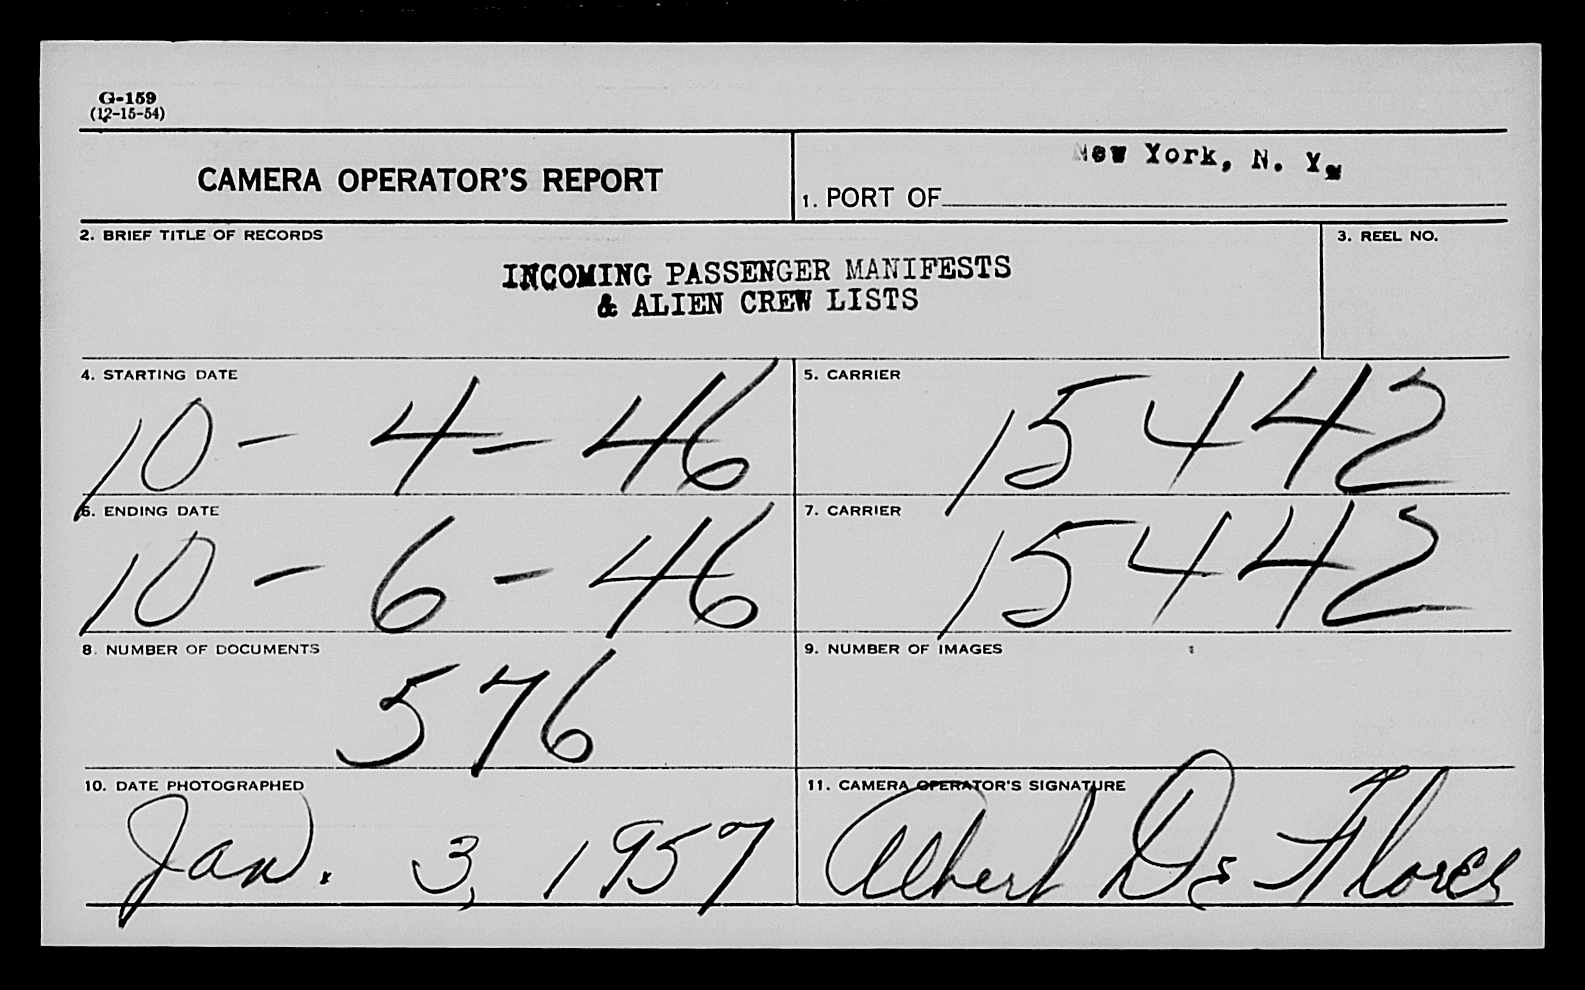 G-159
(12-15-54)
CAMERA OPERATOR'S REPORT
1. PORT OF New York, N. Y.
2. BRIEF TITLE OF RECORDS
INCOMING PASSENGER MANIFESTS
& ALIEN CREW LISTS
3. REEL NO.
4. STARTING DATE
10 - 4 - 46
5. CARRIER
15442
6. ENDING DATE
10 - 6 - 46
7. CARRIER
15442
8. NUMBER OF DOCUMENTS
576
9. NUMBER OF IMAGES
10. DATE PHOTOGRAPHED
Jan. 3, 1957
11. CAMERA OPERATOR'S SIGNATURE
Albert De Flores